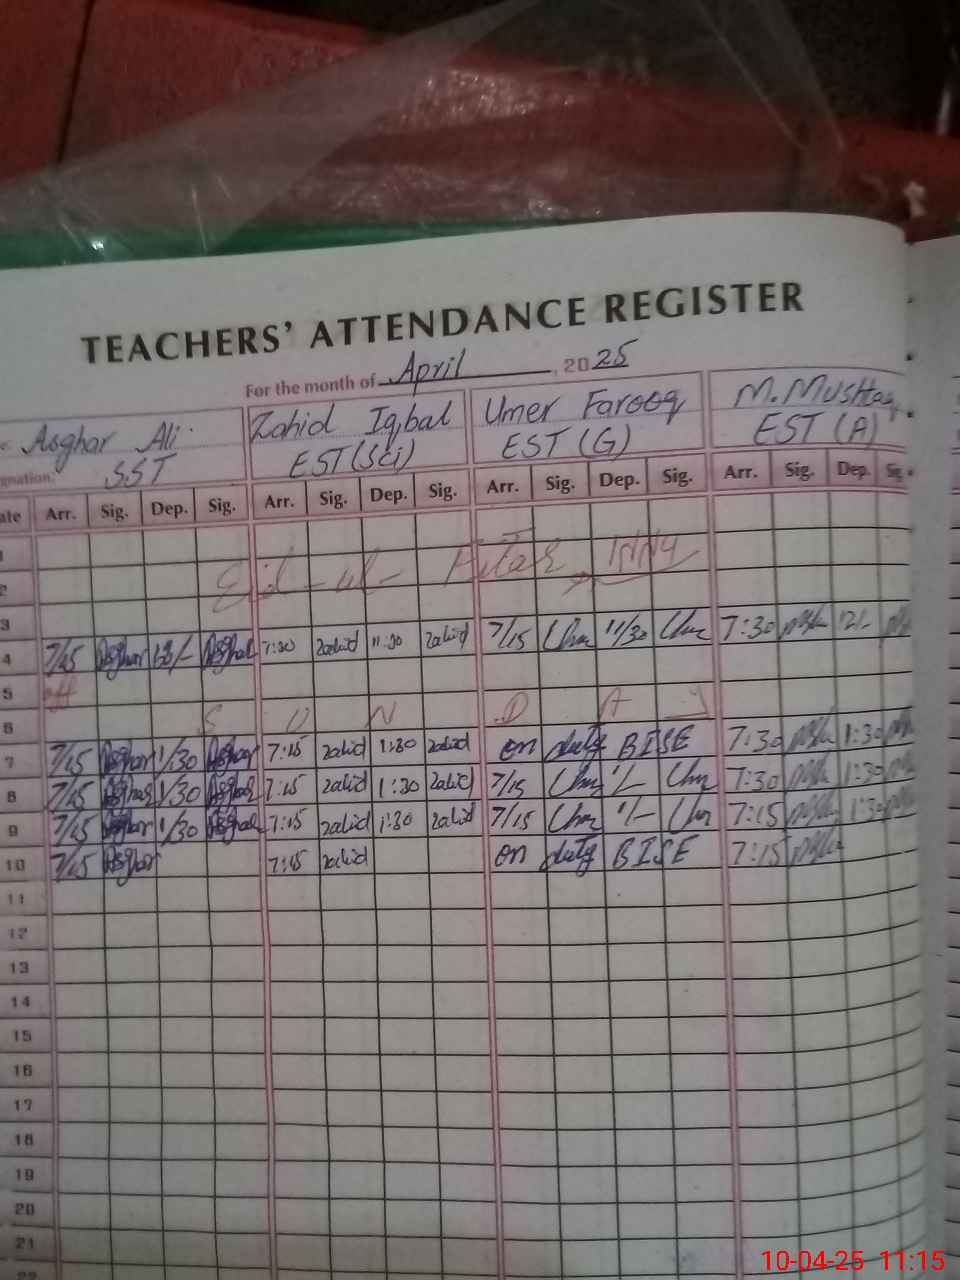 TEACHERS' ATTENDANCE REGISTER
For the month of April, 2025
Asghar Ali Zahid Iqbal Umer Farooq M. Mushtaq
gnation. SST EST (Sci) EST (G) EST (A)
ate Arr. Sig. Dep. Sig. Arr. Sig. Dep. Sig. Arr. Sig. Dep. Sig. Arr. Sig. Dep. Sig.
1
Eid-ul-
2
3
4 7/45 Asghar Asghar 7:30 zahid 11:30 zahid 7/15 11/30 7:30 12/-
5 off
6 S U N D A Y
7 7/45 Asghar 1/30 Asghar 7:15 zahid 1:30 zahid on duty BISE 7:30 1:30
8 7/45 Asghar 1/30 Asghar 7:15 zahid 1:30 zahid 7/15 1/- 7:30 1:30
9 7/45 Asghar 1/30 Asghar 7:15 zahid 1:30 zahid 7/15 1/- 7:15 1:30
10 7/45 Asghar 7:15 zahid on duty BISE 7:15
11
12
13
14
15
16
17
18
19
20
21
22
10-04-25 11:15